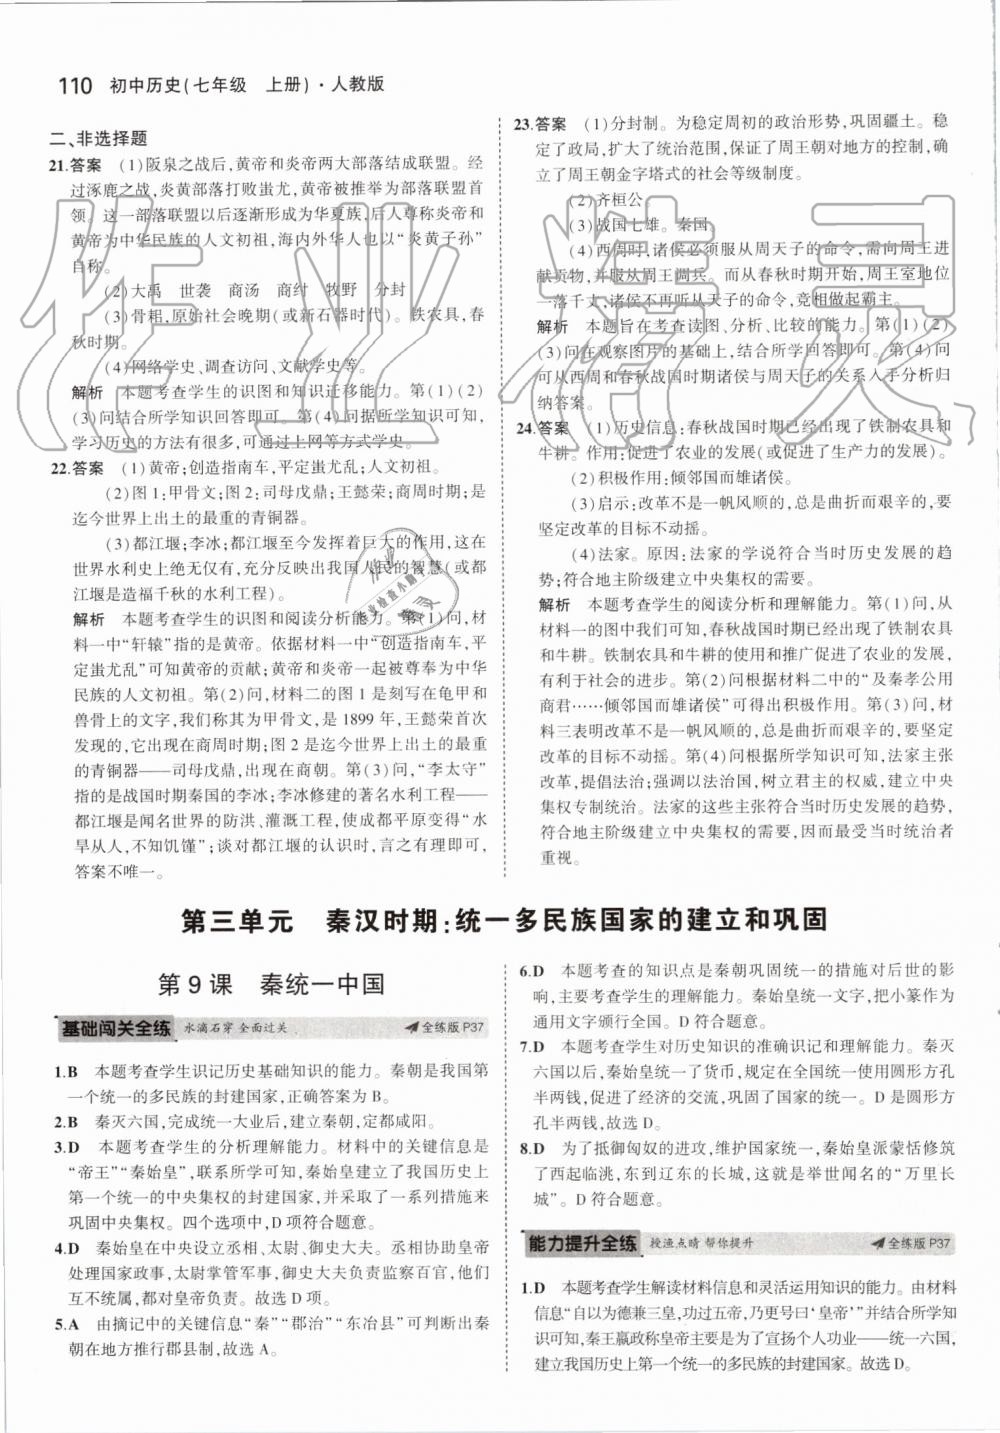 110 初中历史(七年级 上册)·人教版
二、非选择题
21.答案 (1)阪泉之战后,黄帝和炎帝两大部落结成联盟。经
过涿鹿之战,炎黄部落打败蚩尤,黄帝被推举为部落联盟首
领。这一部落联盟以后逐渐形成为华夏族,后人尊称炎帝和
黄帝为中华民族的人文初祖,海内外华人也以“炎黄子孙”
自称。
(2)大禹 世袭 商汤 商纣 牧野 分封
(3)骨耜,原始社会晚期(或新石器时代)。铁农具,春
秋时期。
(4)网络学史、调查访问、文献学史等。
解析 本题考查学生的识图和知识迁移能力。第(1)(2)
(3)问结合所学知识回答即可。第(4)问据所学知识可知,
学习历史的方法有很多,可通过上网等方式学史。
22.答案 (1)黄帝;创造指南车,平定蚩尤乱;人文初祖。
(2)图1:甲骨文;图2:司母戊鼎;王懿荣;商周时期;是
迄今世界上出土的最重的青铜器。
(3)都江堰;李冰;都江堰至今发挥着巨大的作用,这在
世界水利史上绝无仅有,充分反映出我国人民的智慧(或都
江堰是造福千秋的水利工程)。
解析 本题考查学生的识图和阅读分析能力。第(1)问,材
料一中“轩辕”指的是黄帝。依据材料一中“创造指南车,平
定蚩尤乱”可知黄帝的贡献;黄帝和炎帝一起被尊奉为中华
民族的人文初祖。第(2)问,材料二的图1是刻写在龟甲和
兽骨上的文字,我们称其为甲骨文,是1899年,王懿荣首次
发现的,它出现在商周时期;图2是迄今世界上出土的最重
的青铜器——司母戊鼎,出现在商朝。第(3)问,“李太守”
指的是战国时期秦国的李冰;李冰修建的著名水利工程——
都江堰是闻名世界的防洪、灌溉工程,使成都平原变得“水
旱从人,不知饥馑”;谈对都江堰的认识时,言之有理即可,
答案不唯一。
23.答案 (1)分封制。为稳定周初的政治形势,巩固疆土。稳
定了政局,扩大了统治范围,保证了周王朝对地方的控制,确
立了周王朝金字塔式的社会等级制度。
(2)齐桓公。
(3)战国七雄。秦国。
(4)西周时,诸侯必须服从周天子的命令,需向周王进
献贡物,并服从周王调兵。而从春秋时期开始,周王室地位
一落千丈,诸侯不再听从天子的命令,竞相做起霸主。
解析 本题旨在考查读图、分析、比较的能力。第(1)(2)
(3)问在观察图片的基础上,结合所学回答即可。第(4)问
可从西周和春秋战国时期诸侯与周天子的关系入手分析归
纳答案。
24.答案 (1)历史信息:春秋战国时期已经出现了铁制农具和
牛耕。作用:促进了农业的发展(或促进了生产力的发展)。
(2)积极作用:倾邻国而雄诸侯。
(3)启示:改革不是一帆风顺的,总是曲折而艰辛的,要
坚定改革的目标不动摇。
(4)法家。原因:法家的学说符合当时历史发展的趋
势;符合地主阶级建立中央集权的需要。
解析 本题考查学生的阅读分析和理解能力。第(1)问,从
材料一的图中我们可知,春秋战国时期已经出现了铁制农具
和牛耕。铁制农具和牛耕的使用和推广促进了农业的发展,
有利于社会的进步。第(2)问根据材料二中的“及秦孝公用
商君……倾邻国而雄诸侯”可得出积极作用。第(3)问,材
料三表明改革不是一帆风顺的,总是曲折而艰辛的,要坚定
改革的目标不动摇。第(4)问根据所学知识可知,法家主张
改革,提倡法治;强调以法治国,树立君主的权威,建立中央
集权专制统治。法家的这些主张符合当时历史发展的趋势,
符合地主阶级建立中央集权的需要,因而最受当时统治者
重视。
第三单元 秦汉时期:统一多民族国家的建立和巩固
第9课 秦统一中国
基础闯关全练 水滴石穿 全面过关 全练版P37
1.B 本题考查学生识记历史基础知识的能力。秦朝是我国第
一个统一的多民族的封建国家,正确答案为B。
2.B 秦灭六国,完成统一大业后,建立秦朝,定都咸阳。
3.D 本题考查学生的分析理解能力。材料中的关键信息是
“帝王”“秦始皇”,联系所学可知,秦始皇建立了我国历史上
第一个统一的中央集权的封建国家,并采取了一系列措施来
巩固中央集权。四个选项中,D项符合题意。
4.D 秦始皇在中央设立丞相、太尉、御史大夫。丞相协助皇帝
处理国家政事,太尉掌管军事,御史大夫负责监察百官,他们
互不统属,都对皇帝负责。故选D项。
5.A 由摘记中的关键信息“秦”“郡治”“东冶县”可判断出秦
朝在地方推行郡县制,故选A。
6.D 本题考查的知识点是秦朝巩固统一的措施对后世的影
响,主要考查学生的理解能力。秦始皇统一文字,把小篆作为
通用文字颁行全国。D符合题意。
7.D 本题考查学生对历史知识的准确识记和理解能力。秦灭
六国以后,秦始皇统一了货币,规定在全国统一使用圆形方孔
半两钱,促进了经济的交流,巩固了国家的统一。D是圆形方
孔半两钱,故选D。
8.D 为了抵御匈奴的进攻,维护国家统一,秦始皇派蒙恬修筑
了西起临洮,东到辽东的长城,这就是举世闻名的“万里长
城”。D符合题意。
能力提升全练 授渔点睛 帮你提升 全练版P37
1.D 本题考查学生解读材料信息和灵活运用知识的能力。由材料
信息“自以为德兼三皇,功过五帝,乃更号曰‘皇帝’”并结合所学知
识可知,秦王嬴政称皇帝主要是为了宣扬个人功业——统一六国,
建立我国历史上第一个统一的多民族的封建国家。故选D。
作业精灵